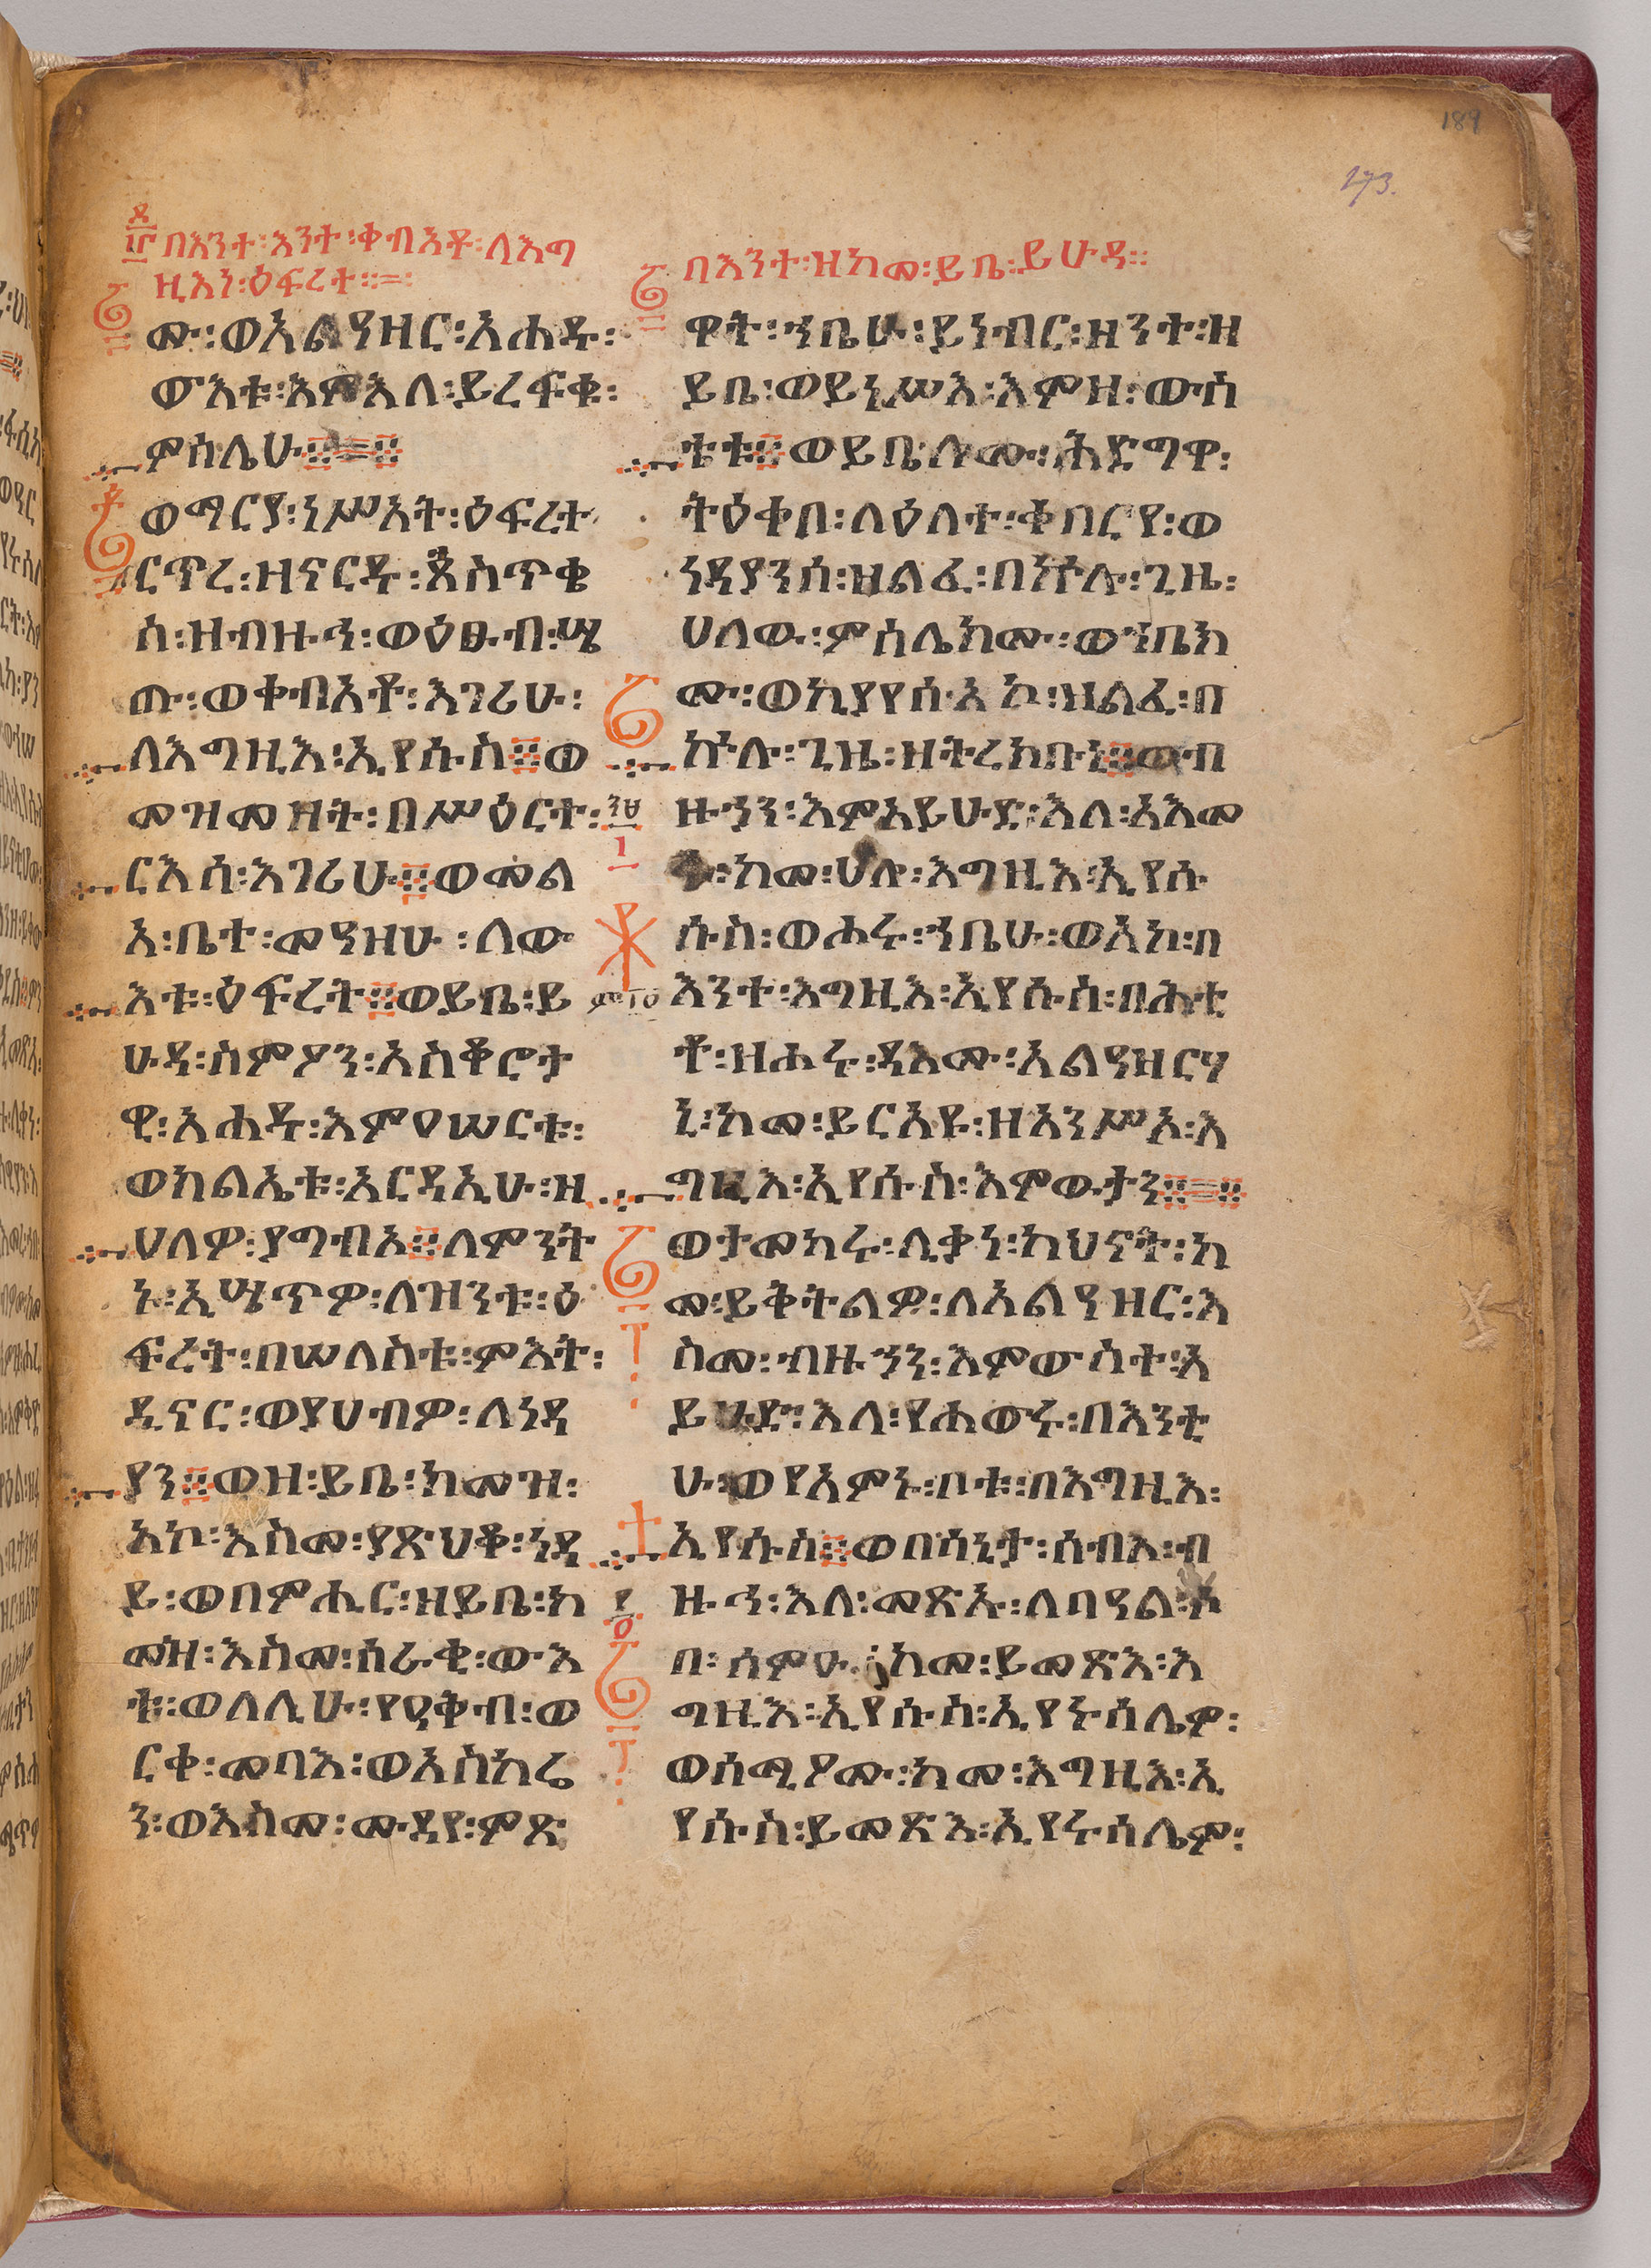 189
173.
በእንተ፡እንተ፡ቀብአቶ፡ለእግ
ዚእነ፡ዕፍረተ፡፡
ሙ፡ወአልዓዘር፡አሐዱ፡
ውእቱ፡እምእለ፡ይረፍቁ፡
ምስሌሁ፡፡
ወማርያ፡ነሥአት፡ዕፍረተ
ርጥረ፡ዘናርዱ፡ጰስጥቄ
ስ፡ዘብዙኅ፡ወዕፁብ፡ሤ
ጡ፡ወቀብአቶ፡እገሪሁ፡
ለእግዚእ፡ኢየሱስ፡፡ወ
መዝመዘት፡በሥዕርተ፡
ርእሳ፡እገሪሁ፡፡ወመል
አ፡ቤተ፡መዓዝሁ፡ለው
እቱ፡ዕፍረት፡፡ወይቤ፡ይ
ሁዳ፡ስምዖን፡አስቆሮታ
ዊ፡አሐዱ፡እምዐሠርቱ፡
ወክልኤቱ፡አርዳኢሁ፡ዘ
ሀለዎ፡ያግብኦ፡፡ለምንት
ኑ፡ኢሤጥዎ፡ለዝንቱ፡ዕ
ፍረት፡በሠለስቱ፡ምእት፡
ዲናር፡ወያሀብዎ፡ለነዳ
ያን፡፡ወዘ፡ይቤ፡ከመዝ፡
አኮ፡እስመ፡ያጽህቆ፡ነዳ
ይ፡ወበምሒር፡ዘይቤ፡ከ
መዘ፡እስመ፡ሰራቂ፡ውእ
ቱ፡ወለሊሁ፡የዐቅብ፡ወ
ርቀ፡መባእ፡ወአስከሬ
ን፡ወእስመ፡ሙዳየ፡ምጽ
በእንተ፡ዘከመ፡ይቤ፡ይሁዳ፡፡
ዋት፡ኀቤሁ፡ይነብር፡ዘንተ፡ዘ
ይቤ፡ወይነሥእ፡እምዘ፡ውስ
ቴቱ፡፡ወይቤሎሙ፡ሕድግዋ፡
ትዕቀበ፡ለዕለተ፡ቀበርየ፡ወ
ነዳያንሰ፡ዘልፈ፡በኵሉ፡ጊዜ፡
ሀለው፡ምስሌክሙ፡ወኀቤክ
ሙ፡ወኪያየሰ፡አኮ፡ዘልፈ፡በ
ኵሉ፡ጊዜ፡ዘትረክቡኒ፡፡ወብ
ዙኃን፡እምአይሁድ፡እለ፡አእመ
ሩ፡ከመ፡ሀሎ፡እግዚእ፡ኢየሱ
ሱስ፡ወሖሩ፡ኀቤሁ፡ወአኮ፡በ
እንተ፡እግዚእ፡ኢየሱስ፡በሕቲ
ቶ፡ዘሖሩ፡ዳእሙ፡አልዓዘርሃ
ኒ፡ከመ፡ይርአዩ፡ዘአንሥኦ፡እ
ግዚእ፡ኢየሱስ፡እምውታን፡፡
ወታመከሩ፡ሊቃነ፡ከህናት፡ከ
መ፡ይቅትልዎ፡ለአልዓዘር፡እ
ስመ፡ብዙኃን፡እምውስተ፡አ
ይሁድ፡እለ፡የሐውሩ፡በእንቲ
ሁ፡ወየአምኑ፡ቦቱ፡በእግዚእ፡
ኢየሱስ፡፡ወበሳኒታ፡ሰብእ፡ብ
ዙኅ፡እለ፡መጽኡ፡ለባዓል፡ሶ
በ፡ሰምዑ፡ከመ፡ይመጽእ፡እ
ግዚእ፡ኢየሱስ፡ኢየሩሰሌም፡
ወሰሚዖሙ፡ከመ፡እግዚእ፡ኢ
የሱስ፡ይመጽእ፡ኢየሩሰሌም፡